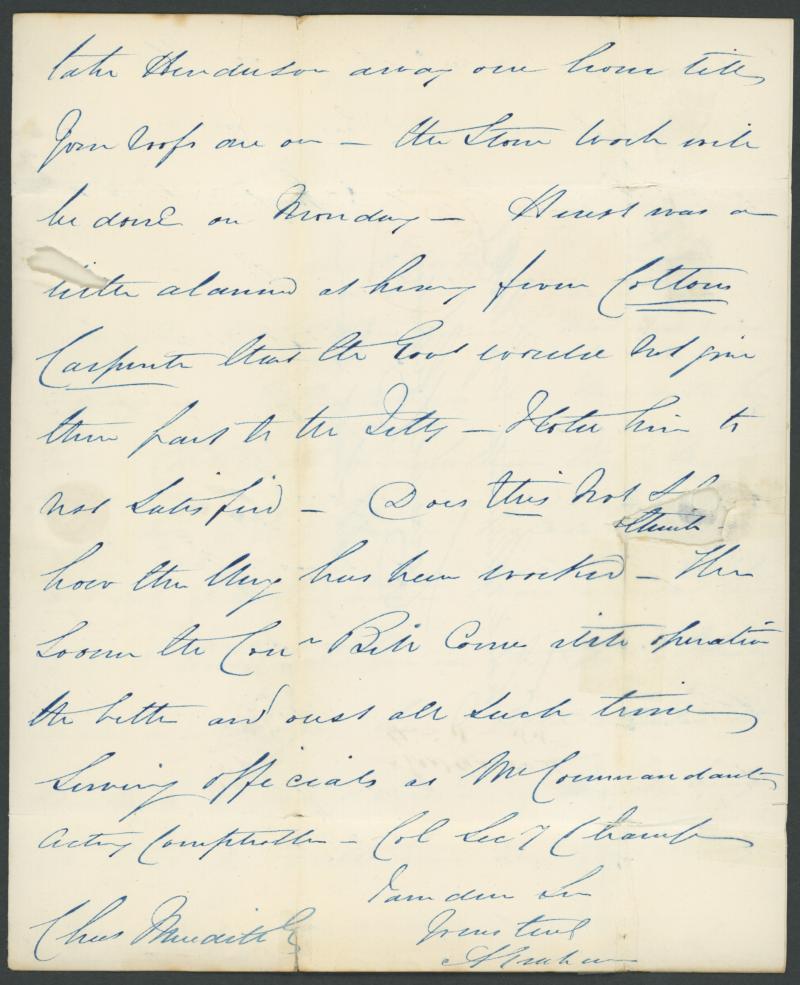 take Henderson away one hour till
your roofs are on – the Stone Work will
be done on Monday – Hurst was a
little alarmed at hearing from Cottons
Carpenter that the Govt would not give
them part to the Jetty – I told him to
not Satisfied – Does this not
how the thing has been worked – The
sooner the Bill Come into operation
the better and oust all such time
Serving officials as Mr Commandant
acting Comptroller – Col Secy Champ
I am dear Sir
Yours truly
Chas Meredith Esq
A Graham